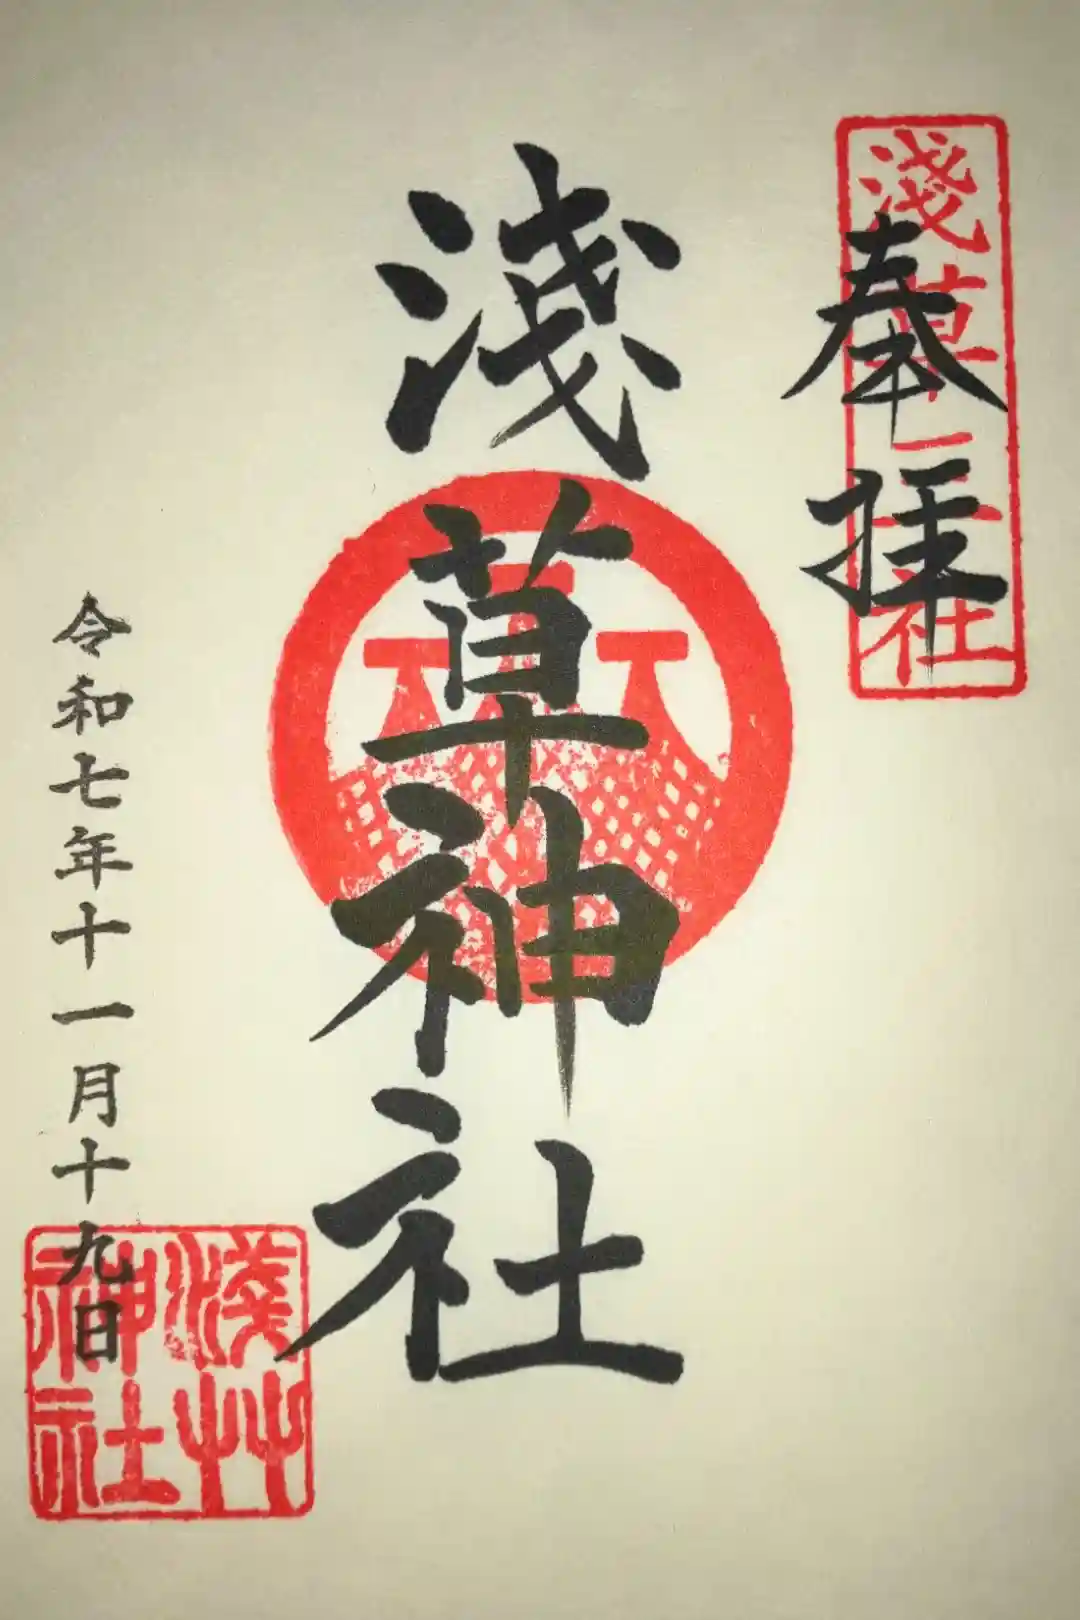 奉拝
淺草三社
淺草神社
令和七年十一月十九日
淺艸
神社